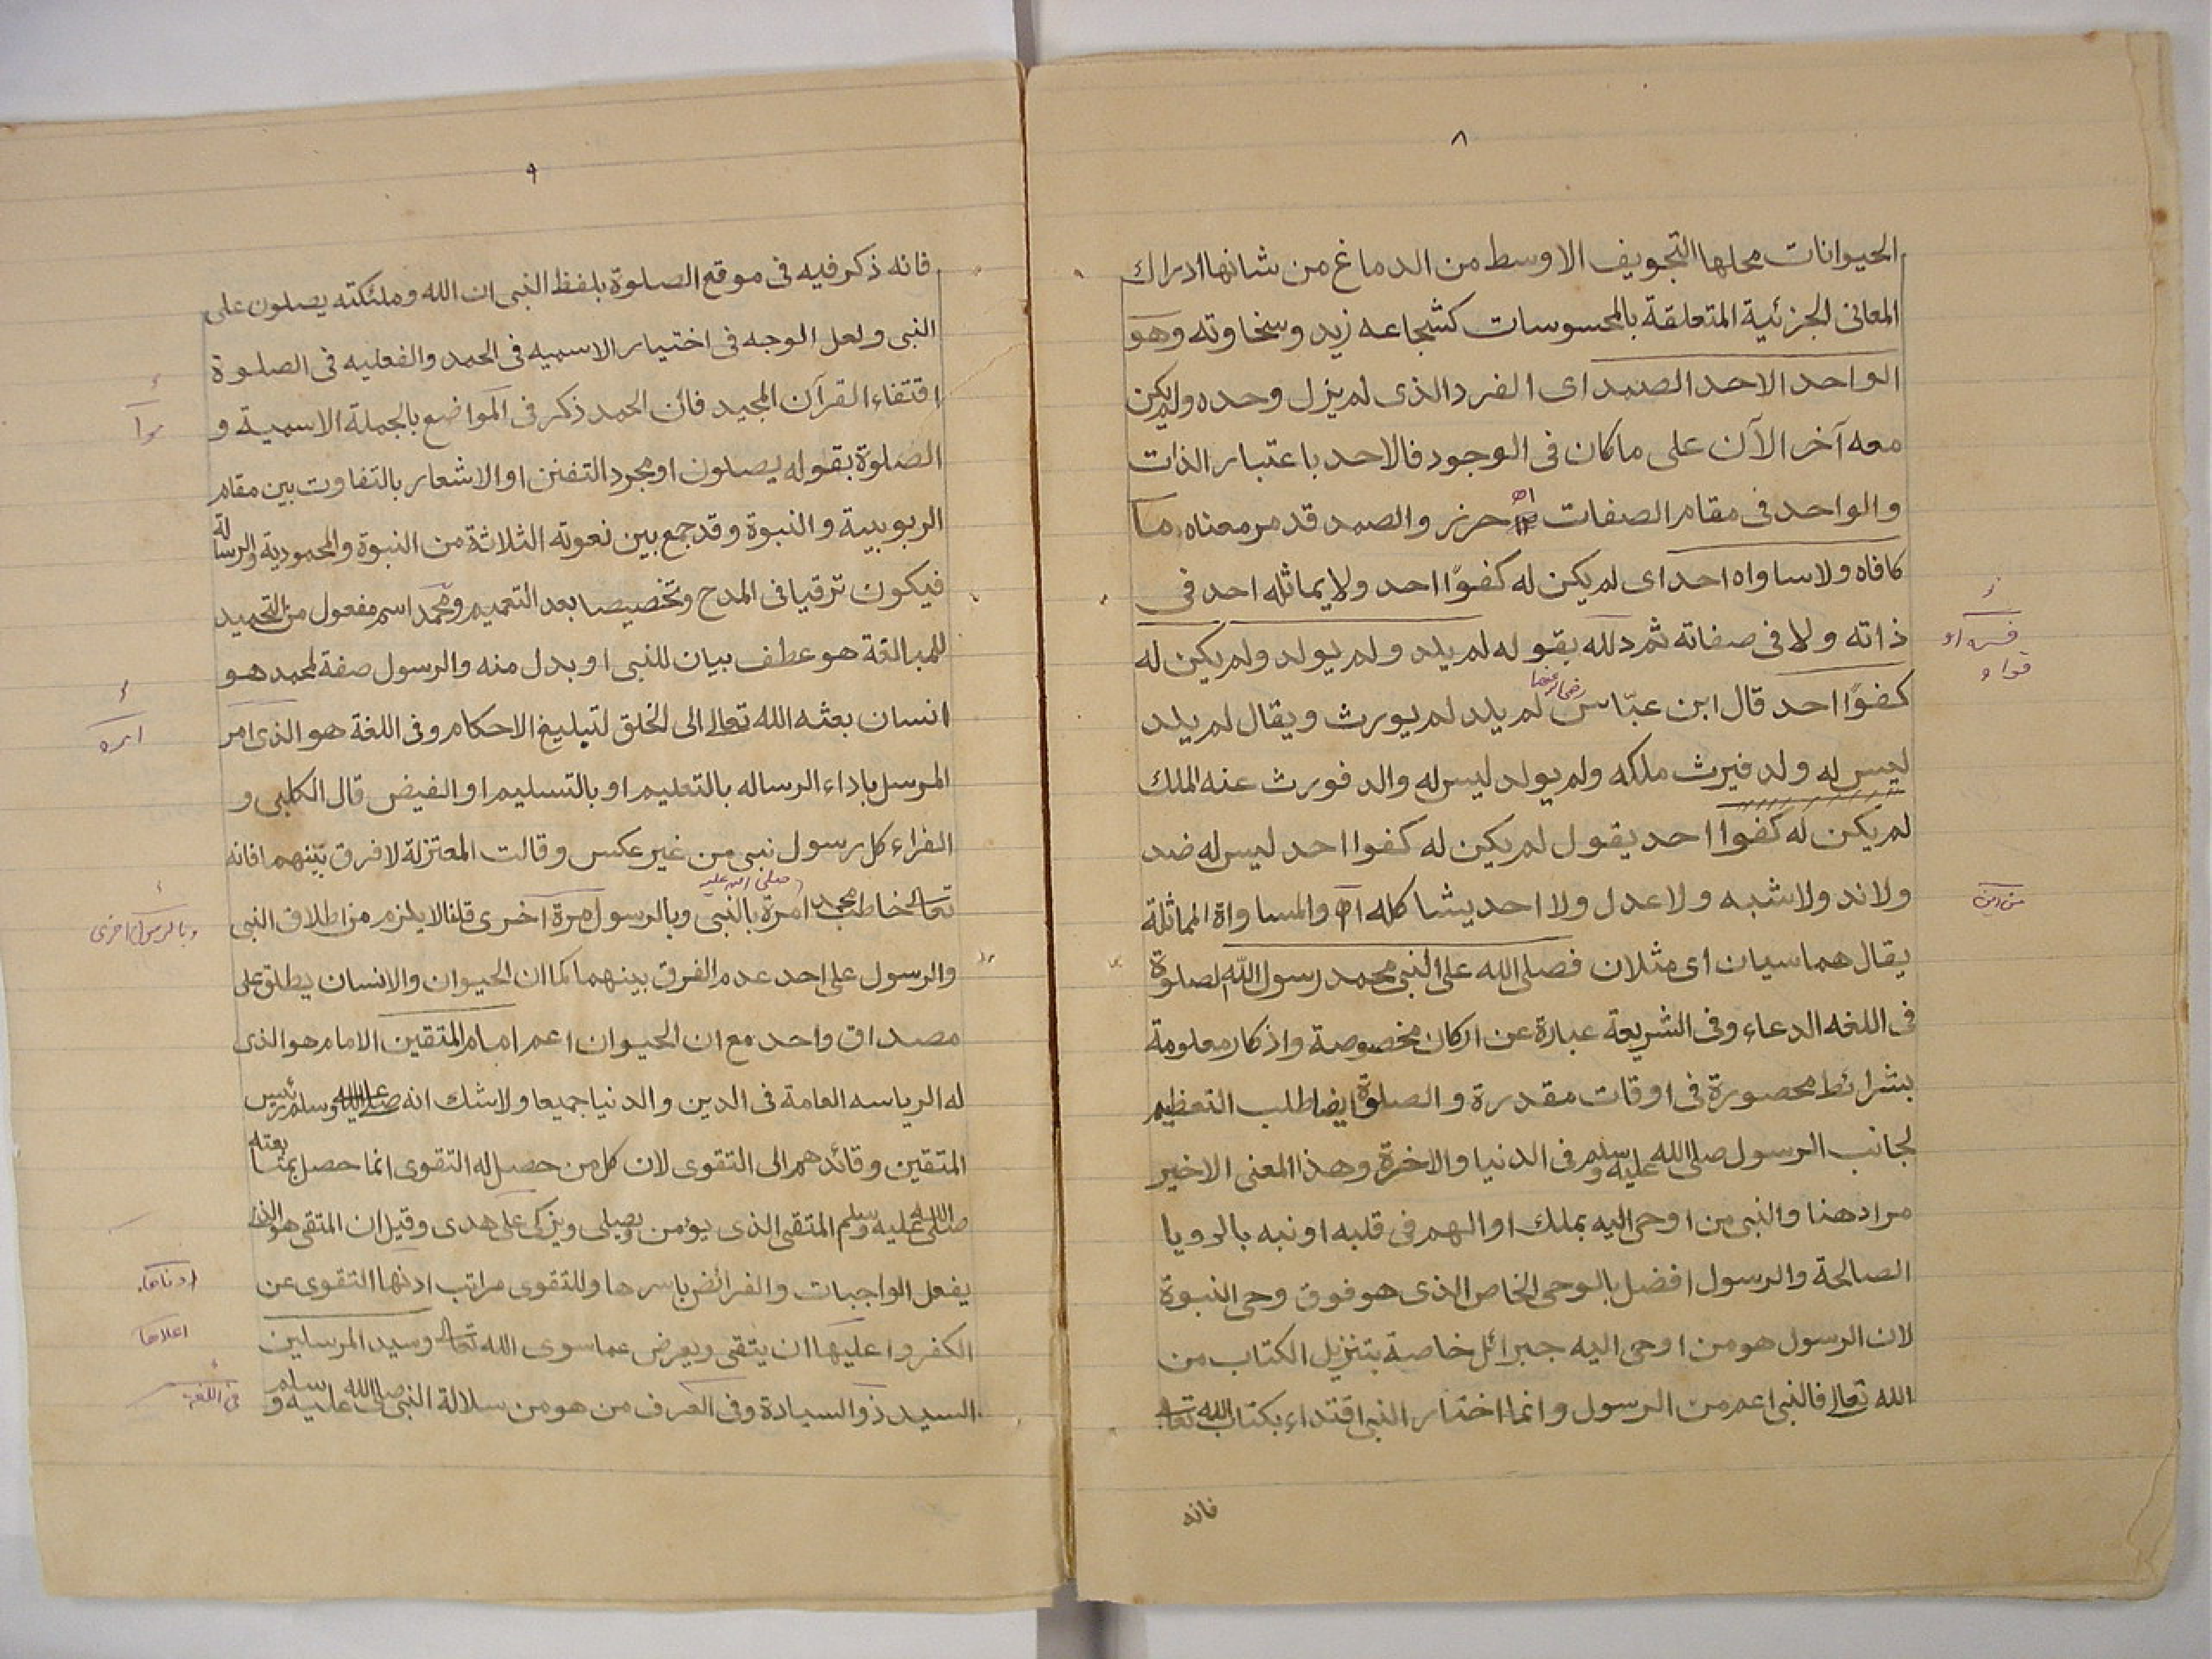 ٨
الحيوانات محلها التجويف الاوسط من الدماغ من شانها ادراك
المعانى الجزئية المتعلقة بالمحسوسات كشجاعه زيد وسخاوته وهو
الواحد الاحد الصمد اى الفرد الذى لم يزل وحده ولم يكن
معه آخر الآن على ما كان فى الوجود فالاحد باعتبار الذات
والواحد فى مقام الصفات اه حرز والصمد قد مر معناه ما
كافاه ولا ساواه احد اى لم يكن له كفوًا احد ولا يماثله احد فى
ذاته ولا فى صفاته ثم دلله بقوله لم يلد ولم يولد ولم يكن له
كفوًا احد قال ابن عبّاس رضى الله عنهما لم يلد لم يورث ويقال لم يلد
ليس له ولد فيرث ملكه ولم يولد ليس له والد فورث عنه الملك
لم يكن له كفوا احد يقول لم يكن له كفوا احد ليس له ضد
ولا ند ولا شبه ولا عدل ولا احد يشاكله اه والمساواة المماثلة
يقال هما سيان اى مثلان فصلى الله على النبى محمد رسول الله الصلوة
فى اللغه الدعاء وفى الشريعة عبارة عن اركان مخصوصة واذكار معلومة
بشرائط محصورة فى اوقات مقدرة والصلوة ايضا طلب التعظيم
لجانب الرسول صلى الله عليه وسلم فى الدنيا والاخرة وهذا المعنى الاخير
مراد هنا والنبى من اوحى اليه بملك او الهم فى قلبه او نبه بالرويا
الصالحة والرسول افضل بالوحى الخاص الذى هو فوق وحى النبوة
لان الرسول هو من اوحى اليه جبرائل خاصة بتنزيل الكتاب من
الله تعالى فالنبى اعم من الرسول وانما اختار النبى اقتداء بكتاب الله تعالى
فانه
٩
فانه ذكر فيه فى موقع الصلوة بلفظ النبى ان الله وملئكته يصلون على
النبى ولعل الوجه فى اختيار الاسميه فى الحمد والفعليه فى الصلوة
اقتفاء القرآن المجيد فان الحمد ذكر فى المواضع بالجملة الاسمية و
الصلوة بقوله يصلون او مجرد التفنن او الاشعار بالتفاوت بين مقام
الربوبية والنبوة وقد جمع بين نعوته الثلاثة من النبوة والمحمودية والرسالة
فيكون ترقيا فى المدح وتخصيصا بعد التعميم ومحمّد اسم مفعول من التحميد
للمبالغة هو عطف بيان للنبى او بدل منه والرسول صفة لمحمد هو
انسان بعثه الله تعالى الى الخلق لتبليغ الاحكام وفى اللغة هو الذى امر
امره
المرسل باداء الرساله بالتعليم او بالتسليم او الفيض قال الكلبى و
الفراء كل رسول نبى من غير عكس وقالت المعتزلة لا فرق بينهما فانه
تعالى خاطب محمدا صلى الله عليه مرة بالنبى وبالرسول مرة آخرى قلنا لا يلزم من اطلاق النبى
وبالرسول اخرى
والرسول على احد عدم الفرق بينهما كما ان الحيوان والانسان يطلق على
مصداق واحد مع ان الحيوان اعم امام المتقين الامام هو الذى
له الرياسه العامة فى الدين والدنيا جميعا ولا شك انه صلى الله عليه وسلم رئيس
المتقين وقائدهم الى التقوى لان كل من حصل له التقوى انما حصل بمتابعته
صلى الله عليه وسلم المتقى الذى يؤمن ويصلى ويزكى على هدى وقيل ان المتقى هو الذى
يفعل الواجبات والفرائض باسرها وللتقوى مراتب ادنها التقوى عن
ادناها
الكفر واعليها ان يتقى ويعرض عما سوى الله تعالى وسيد المرسلين
اعلاها
السيد ذو السيادة وفى العرف من هو من سلالة النبى صلى الله عليه وسلم
فى اللغة